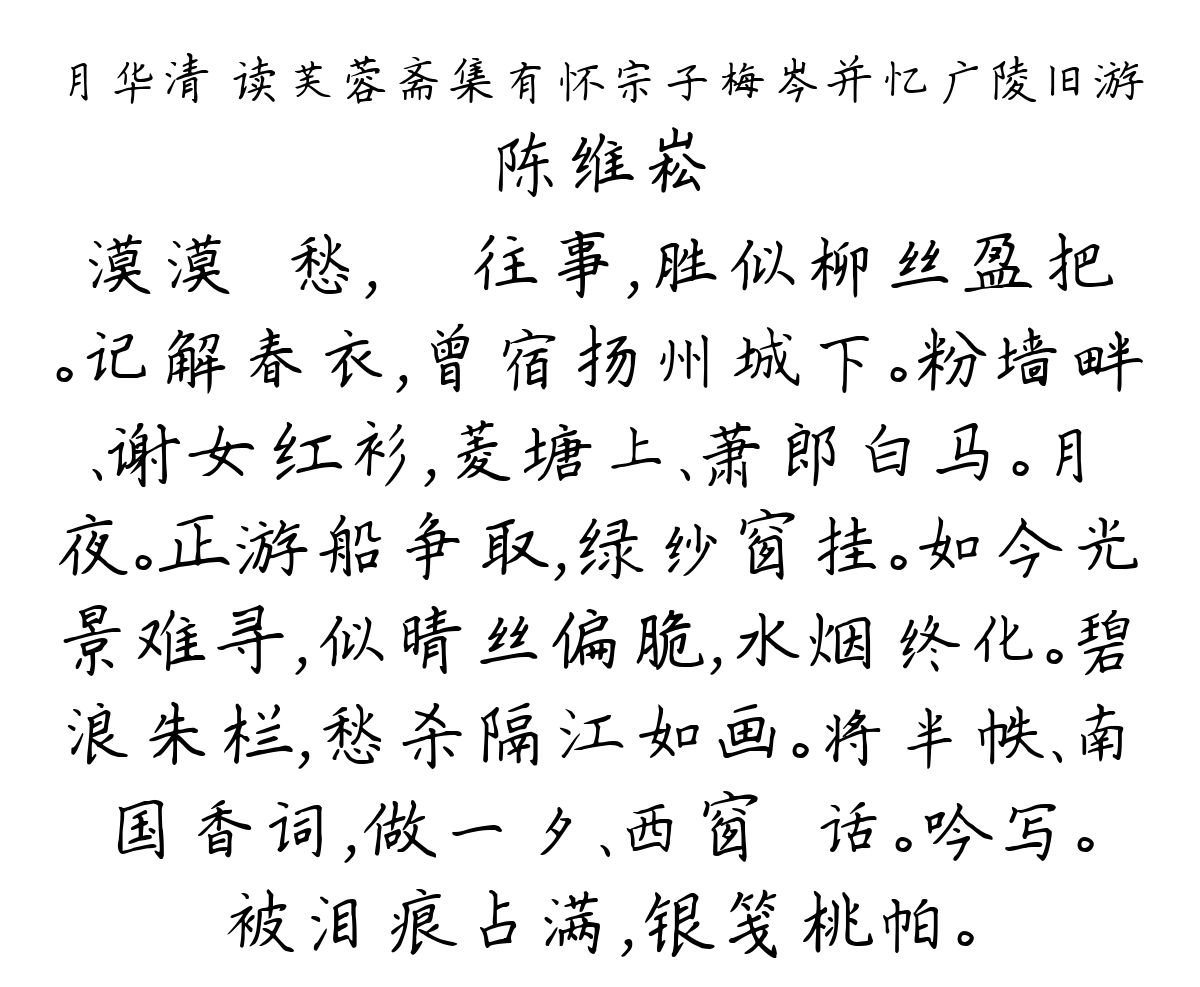 月华清 读芙蓉斋集有怀宗子梅岑并忆广陵旧游
陈维崧
漠漠 愁, 往事,胜似柳丝盈把
。记解春衣,曾宿扬州城下。粉墙畔
、谢女红衫,菱塘上、萧郎白马。月
夜。正游船争取,绿纱窗挂。如今光
景难寻,似晴丝偏脆,水烟终化。碧
浪朱栏,愁杀隔江如画。将半帙、南
国香词,做一夕、西窗 话。吟写。
被泪痕占满,银笺桃帕。